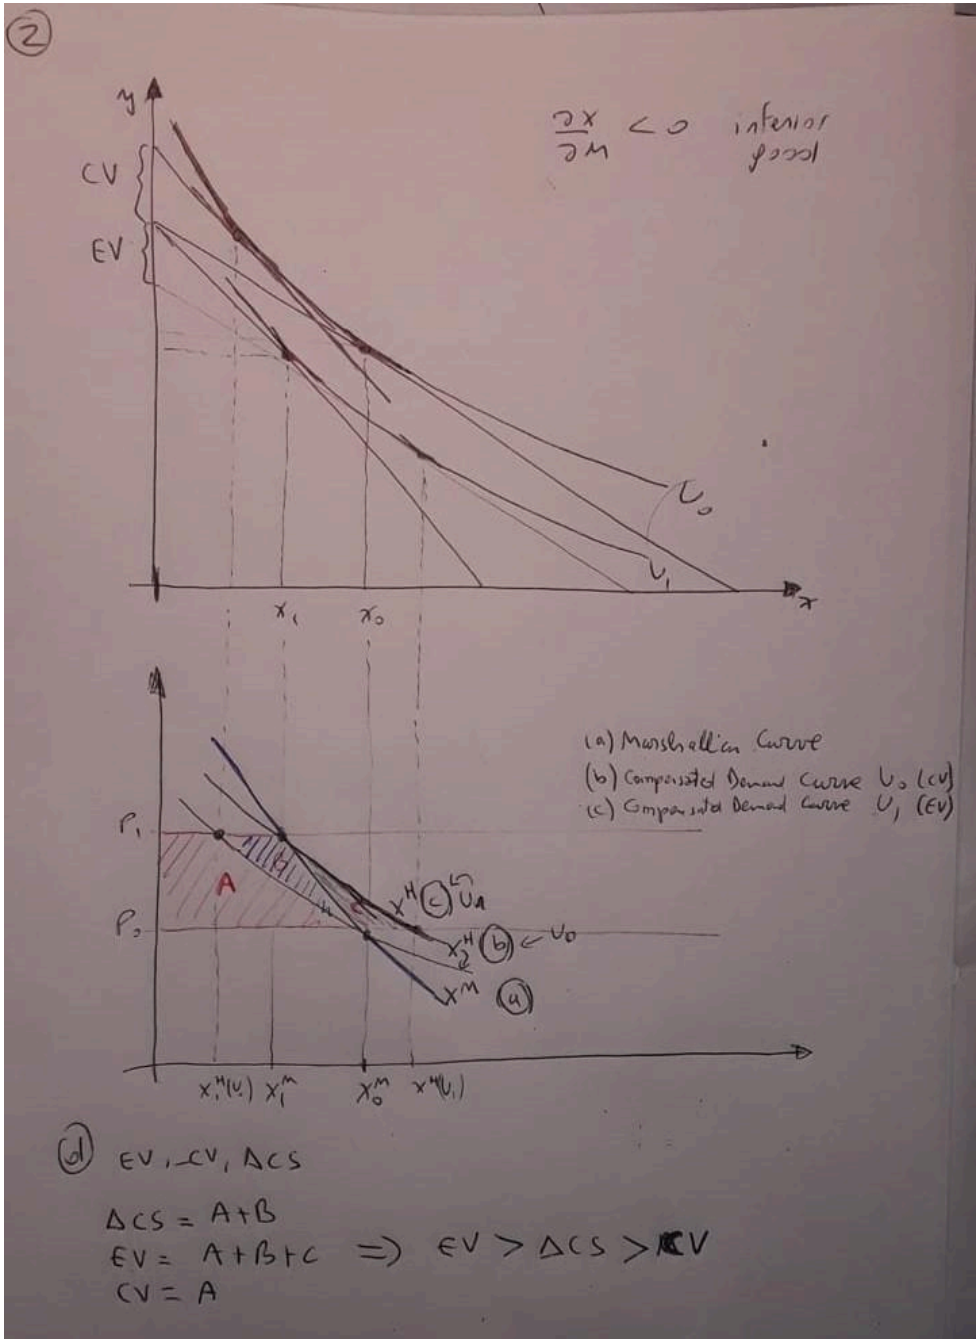 ②
y
∂x/∂M < 0 inferior good
CV
EV
U₀
U₁
x
x₁ x₀
(a) Marshallian Curve
(b) Compensated Demand Curve U₀ (CV)
(c) Compensated Demand Curve U₁ (EV)
P₁
A
P₀
xᴴ (c)
(b) ← U₀
xᴹ (a)
x₁ᴹ x₀ᴹ xᴴ(U₁)
(d) EV, -CV, ΔCS
ΔCS = A+B
EV = A+B+C => EV > ΔCS > CV
CV = A